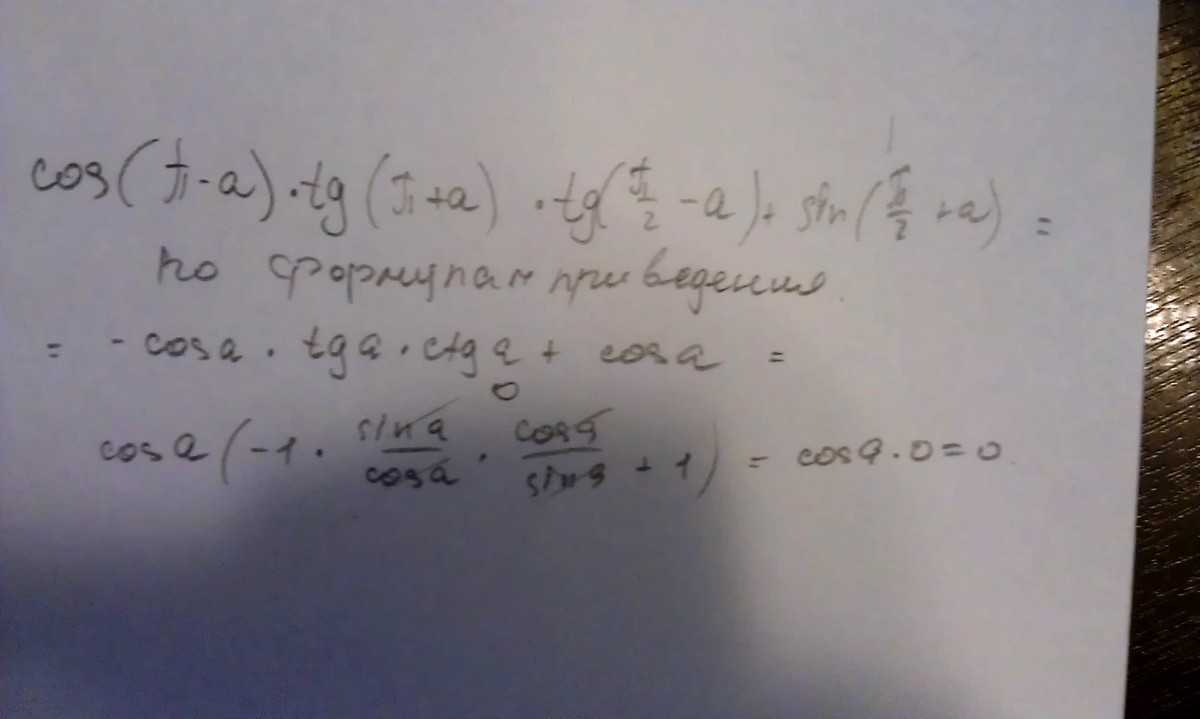 cos(π-a)·tg(π+a)·tg(π/2-a)+sin(π/2+a)=
по формулам приведения.
= -cosa·tga·ctga+cosa=
0
cosa(-1·sina/cosa·cosa/sina+1)=cosa·0=0.